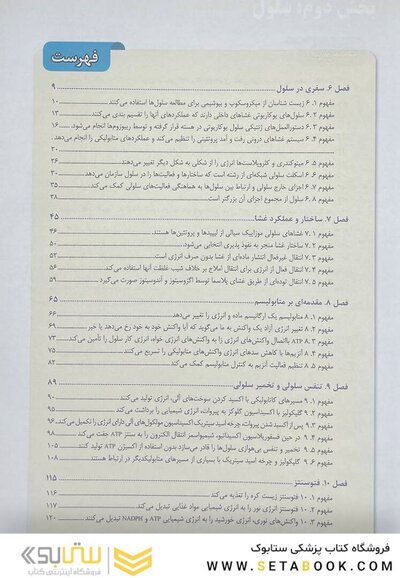 بخش دوم: سلول
فهرست
فصل ۶. سفری در سلول ۹
مفهوم ۶.۱ زیست شناسان از میکروسکوپ و بیوشیمی برای مطالعه سلول‌ها استفاده می‌کنند ۱۰
مفهوم ۶.۲ سلول‌های یوکاریوتی غشاهای داخلی دارند که عملکردهای آنها را تقسیم بندی می‌کنند ۱۳
مفهوم ۶.۳ دستورالعمل‌های ژنتیکی سلول یوکاریوتی در هسته قرار گرفته و توسط ریبوزوم‌ها انجام می‌شود ۱۶
مفهوم ۶.۴ سیستم غشاهای درونی رفت و آمد پروتئینی را تنظیم می‌کند و عملکردهای متابولیکی را انجام می‌دهد
۲۰
مفهوم ۶.۵ میتوکندری و کلروپلاست‌ها انرژی را از شکلی به شکل دیگر تغییر می‌دهند ۲۶
مفهوم ۶.۶ اسکلت سلولی شبکه‌ای از رشته است که ساختارها و فعالیت‌ها را در سلول سازمان می‌دهد ۳۰
مفهوم ۶.۷ اجزای خارج سلولی و ارتباط بین سلول‌ها به هماهنگی فعالیت‌های سلولی کمک می‌کند ۳۵
مفهوم ۶.۸ سلول از مجموع اجزای آن بزرگتر است ۳۸
فصل ۷. ساختار و عملکرد غشا ۴۵
مفهوم ۷.۱ غشاهای سلولی موزاییک سیالی از لیپیدها و پروتئین‌ها هستند ۴۶
مفهوم ۷.۲ ساختار غشا منجر به نفوذ پذیری انتخابی می‌شود ۵۰
مفهوم ۷.۳ انتقال غیرفعال انتشار ماده‌ای از غشا بدون صرف انرژی است ۵۲
مفهوم ۷.۴ انتقال فعال از انرژی برای انتقال املاح بر خلاف شیب غلظت آنها استفاده می‌کند ۵۶
مفهوم ۷.۵ انتقال توده‌ای از طریق غشای پلاسما توسط اگزوسیتوز و اندوسیتوز صورت می‌گیرد ۵۹
فصل ۸. مقدمه‌ای بر متابولیسم ۶۵
مفهوم ۸.۱ متابولیسم یک ارگانیسم ماده و انرژی را تغییر می‌دهد ۶۶
مفهوم ۸.۲ تغییر انرژی آزاد یک واکنش به ما می‌گوید که آیا واکنش خود به خود رخ می‌دهد یا خیر ۶۹
مفهوم ۸.۳ ATP با اتصال واکنش‌های انرژی زا به واکنش‌های انرژی خواه، انرژی کار سلول را تأمین می‌کند ۷۳
مفهوم ۸.۴ آنزیم‌ها با کاهش سدهای انرژی واکنش‌های متابولیکی را تسریع می‌کنند ۷۵
مفهوم ۸.۵ تنظیم فعالیت آنزیم به کنترل متابولیسم کمک می‌کند ۸۲
فصل ۹. تنفس سلولی و تخمیر سلولی ۸۹
مفهوم ۹.۱ مسیرهای کاتابولیکی با اکسید کردن سوخت‌های آلی، انرژی تولید می‌کنند ۹۰
مفهوم ۹.۲ گلیکولیز با اکسیداسیون گلوکز به پیروات، انرژی شیمیایی را برداشت می‌کند ۹۵
مفهوم ۹.۳ پس از اکسید شدن پیروات، چرخه اسید سیتریک اکسیداسیون مولکول‌های آلی دارای انرژی را تکمیل می‌کند ۹۶
مفهوم ۹.۴ در حین فسفوریلاسیون اکسیداتیو، شیمیواسمز انتقال الکترون را به سنتز ATP جفت می‌کند ۹۸
مفهوم ۹.۵ تخمیر و تنفس بی‌هوازی سلول‌ها را قادر می‌سازد بدون استفاده از اکسیژن ATP تولید کنند ۱۰۵
مفهوم ۹.۶ گلیکولیز و چرخه اسید سیتریک با بسیاری از مسیرهای متابولیکدیگر در ارتباط هستند ۱۰۸
فصل ۱۰. فتوسنتز ۱۱۵
مفهوم ۱۰.۱ فتوسنتز زیست کره را تغذیه می‌کند ۱۱۶
مفهوم ۱۰.۲ فتوسنتز انرژی نور را به انرژی شیمیایی مواد غذایی تبدیل می‌کند ۱۱۷
مفهوم ۱۰.۳ واکنش‌های نوری، انرژی خورشید را به انرژی شیمیایی ATP و NADPH تبدیل می‌کنند ۱۲۰
فروشگاه کتاب پزشکی ستابوک
WWW.SETABOOK.COM
ستابوک
فروشگاه اینترنتی کتاب